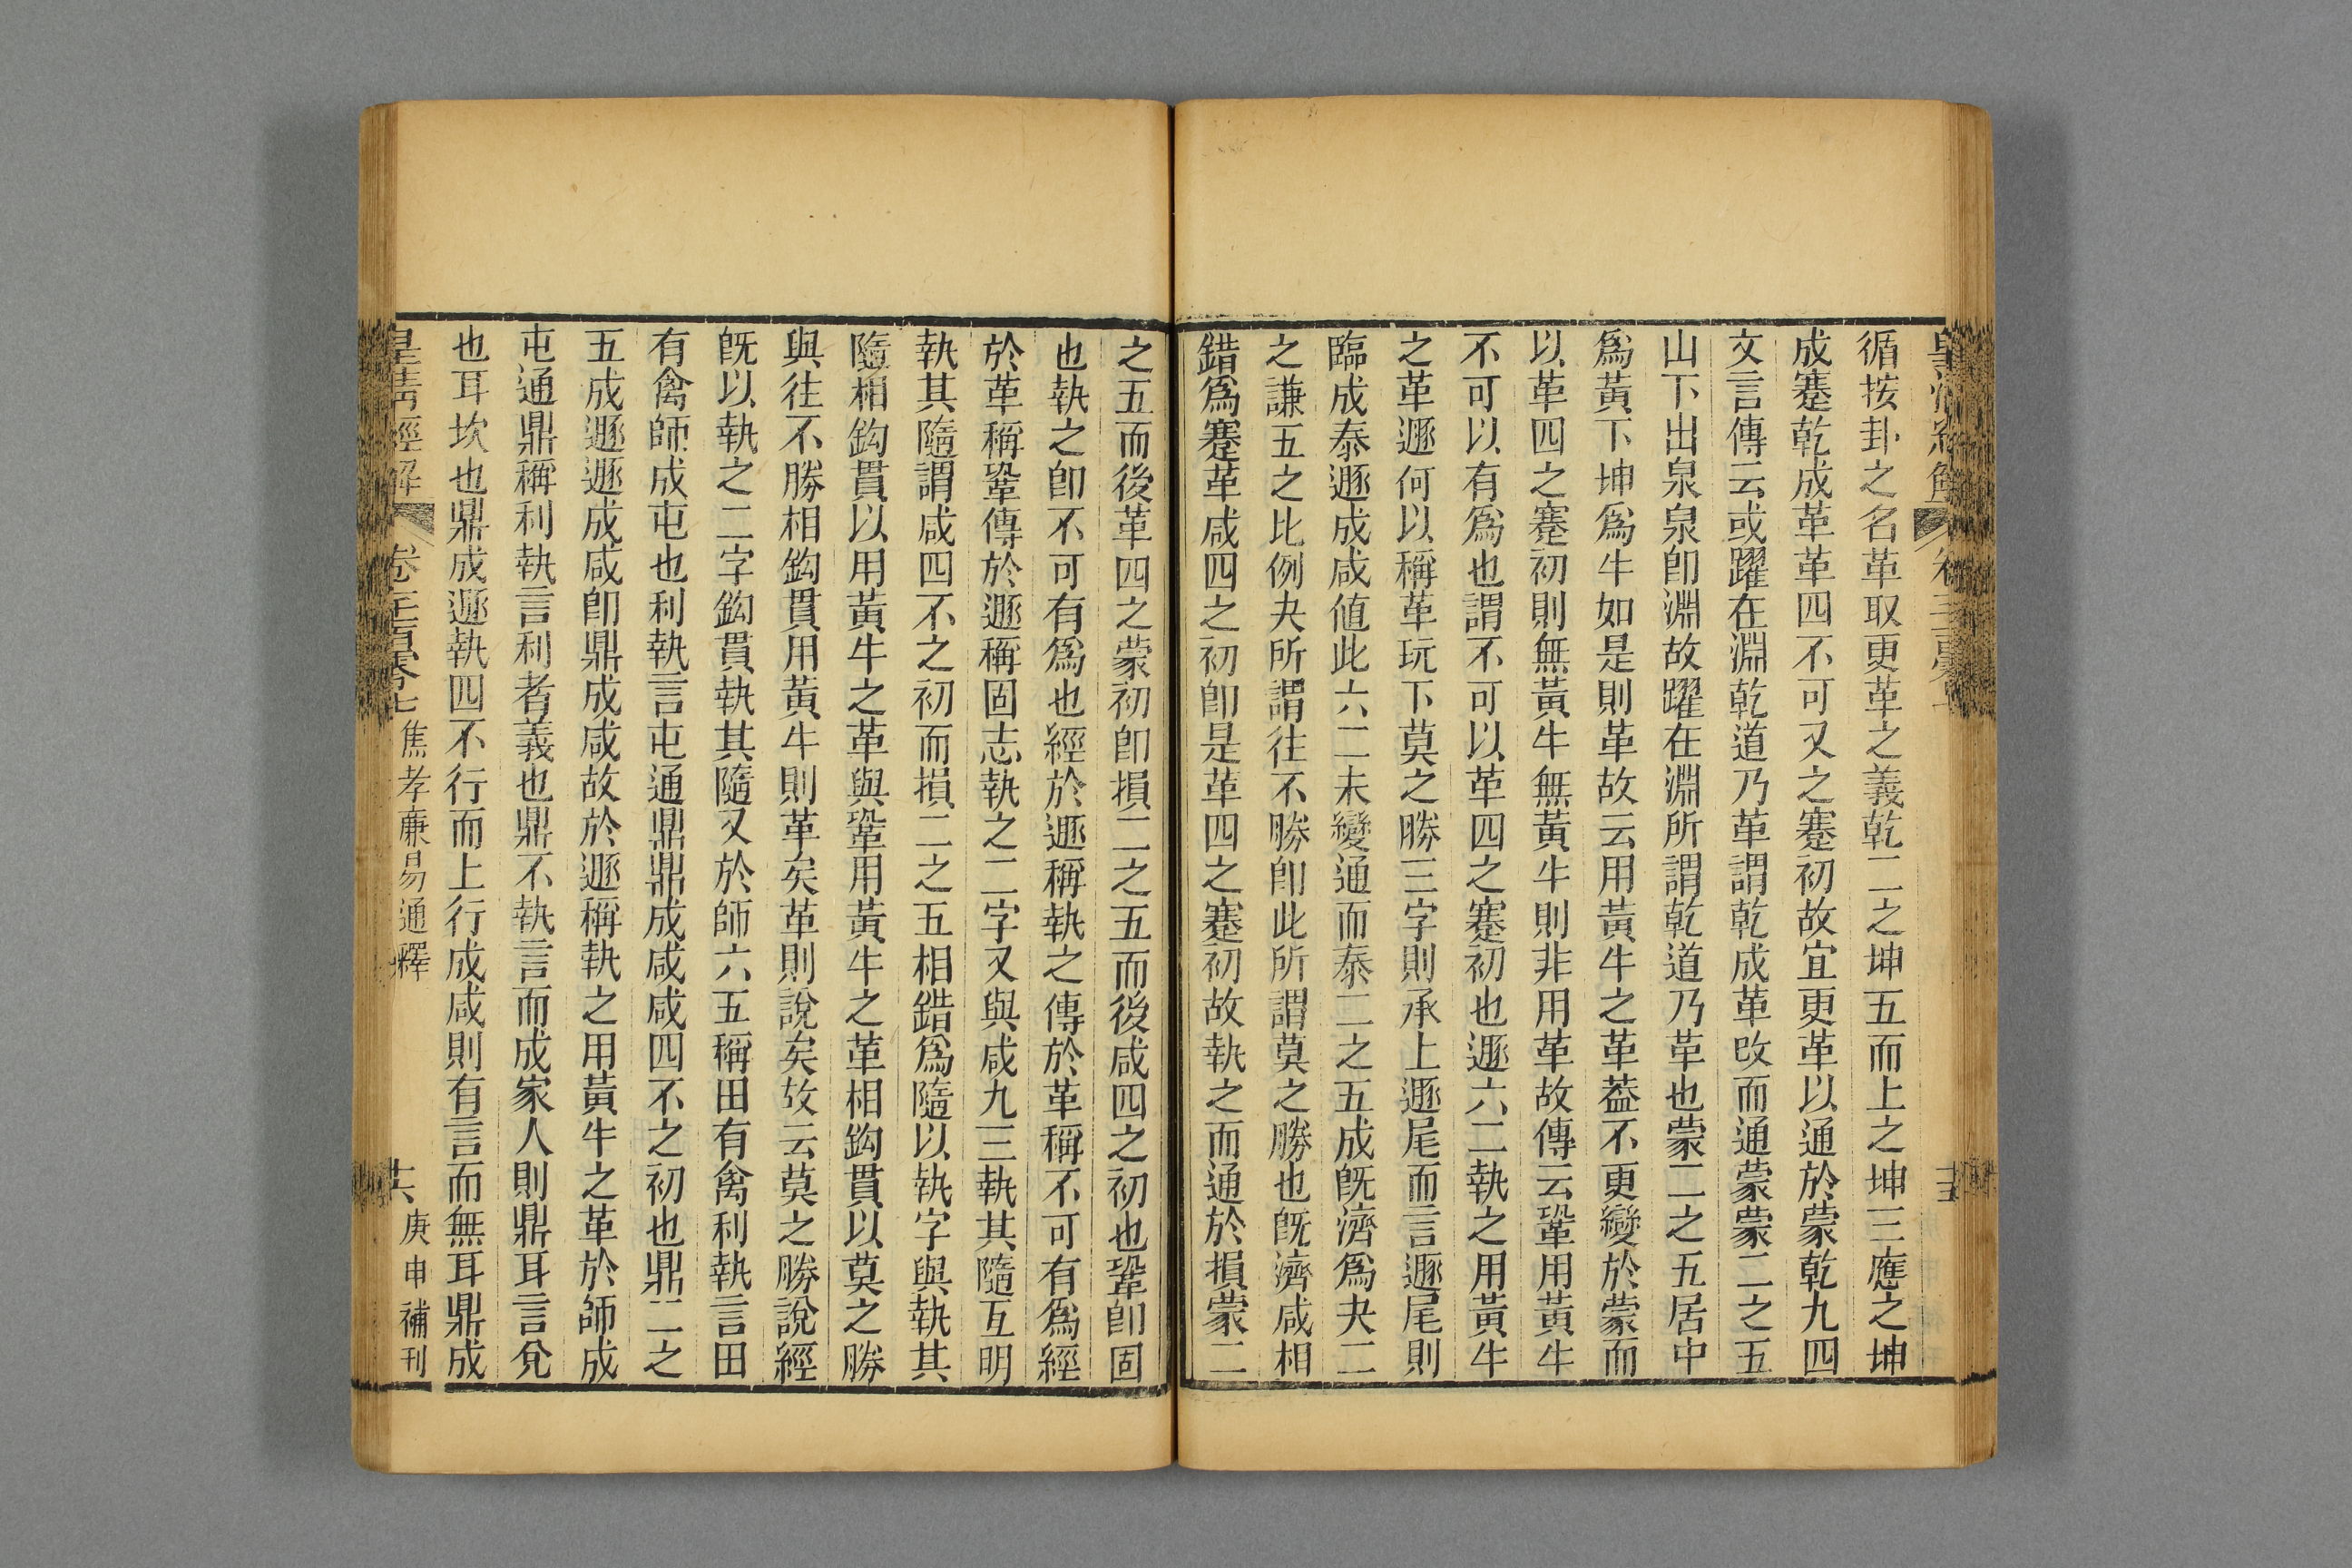 循按卦之名革取更革之義乾二之坤五而上之坤三應之坤
成蹇乾成革革四不可又之蹇初故宜更革以通於蒙乾九四
文言傳云或躍在淵乾道乃革謂乾成革改而通蒙蒙二之五
山下出泉泉卽淵故躍在淵所謂乾道乃革也蒙二之五居中
爲黃下坤爲牛如是則革故云用黃牛之革葢不更變於蒙而
以革四之蹇初則無黃牛無黃牛則非用革故傳云鞏用黃牛
不可以有爲也謂不可以革四之蹇初也遯六二執之用黃牛
之革遯何以稱革玩下莫之勝三字則承上遯尾而言遯尾則
臨成泰遯成咸値此六二未變通而泰二之五成旣濟爲夬二
之謙五之比例夬所謂往不勝卽此所謂莫之勝也旣濟咸相
錯爲蹇革咸四之初卽是革四之蹇初故執之而通於損蒙二
之五而後革四之蒙初卽損二之五而後咸四之初也鞏卽固
也執之卽不可有爲也經於遯稱執之傳於革稱不可有爲經
於革稱鞏傳於遯稱固志執之二字又與咸九三執其隨互明
執其隨謂咸四不之初而損二之五相錯爲隨以執字與執其
隨相鉤貫以用黃牛之革與鞏用黃牛之革相鉤貫以莫之勝
與往不勝相鉤貫用黃牛則革矣革則說矣故云莫之勝說經
旣以執之二字鉤貫執其隨又於師六五稱田有禽利執言田
有禽師成屯也利執言屯通鼎鼎成咸咸四不之初也鼎二之
五成遯遯成咸卽鼎成咸故於遯稱執之用黃牛之革於師成
屯通鼎稱利執言利者義也鼎不執言而成家人則鼎耳言兌
也耳坎也鼎成遯執四不行而上行成咸則有言而無耳鼎成
皇淸經解 卷 焦孝廉易通釋 十六 庚申補刊